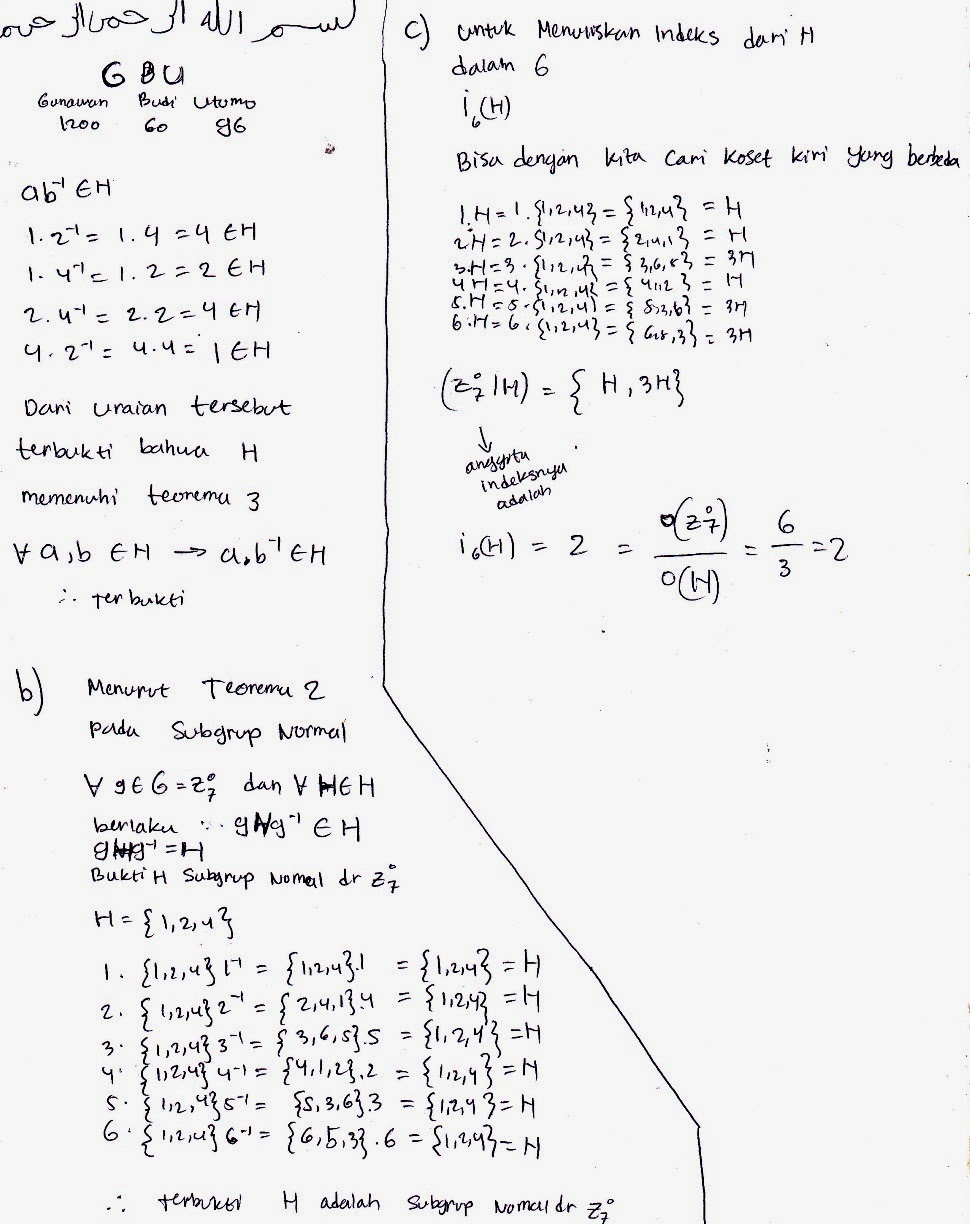 بسم الله الرحمن الرحيم
G B U
Gunawan Budi Utomo
1200 60 96
ab⁻¹ ∈ H
1. 2⁻¹ = 1. 4 = 4 ∈ H
1. 4⁻¹ = 1. 2 = 2 ∈ H
2. 4⁻¹ = 2. 2 = 4 ∈ H
4. 2⁻¹ = 4. 4 = 1 ∈ H
Dari uraian tersebut
terbukti bahwa H
memenuhi teorema 3
∀ a, b ∈ H → a.b⁻¹ ∈ H
∴ Terbukti
b) Menurut Teorema 2
pada Subgrup Normal
∀ g ∈ G = Z₇° dan ∀ H ∈ H
berlaku ∴ gHg⁻¹ ∈ H
gHg⁻¹ = H
Bukti H Subgrup Nomal dr Z₇°
H = {1, 2, 4}
1. {1,2,4} 1⁻¹ = {1,2,4}.1 = {1,2,4} = H
2. {1,2,4} 2⁻¹ = {2,4,1}.4 = {1,2,4} = H
3. {1,2,4} 3⁻¹ = {3,6,5}.5 = {1,2,4} = H
4. {1,2,4} 4⁻¹ = {4,1,2}.2 = {1,2,4} = H
5. {1,2,4} 5⁻¹ = {5,3,6}.3 = {1,2,4} = H
6. {1,2,4} 6⁻¹ = {6,5,3}.6 = {1,2,4} = H
∴ terbukti H adalah Subgrup Nomal dr Z₇°
c) untuk Menuliskan Indeks dari H
dalam G
i_G(H)
Bisa dengan kita cari koset kiri yang berbeda
1.H = 1. {1,2,4} = {1,2,4} = H
2H = 2. {1,2,4} = {2,4,1} = H
3.H = 3. {1,2,4} = {3,6,5} = 3H
4H = 4. {1,2,4} = {4,1,2} = H
5.H = 5. {1,2,4} = {5,3,6} = 3H
6.H = 6. {1,2,4} = {6,5,3} = 3H
(Z₇° | H) = { H, 3H}
↓
anggota
indeksnya
adalah
i_G(H) = 2 = o(Z₇°) / o(H) = 6/3 = 2